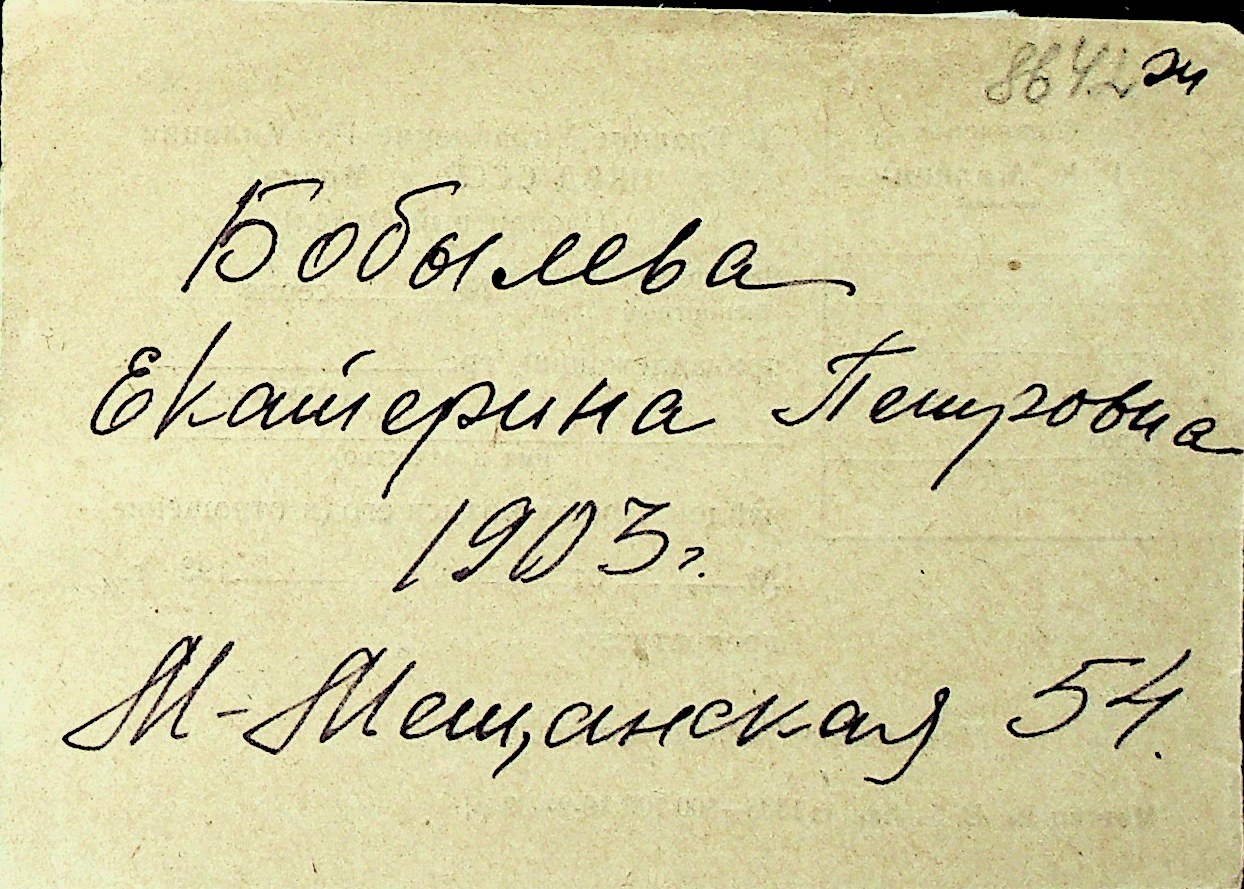 Бобылева
Екатерина Петровна
1903г.
М-Мещанская 54.